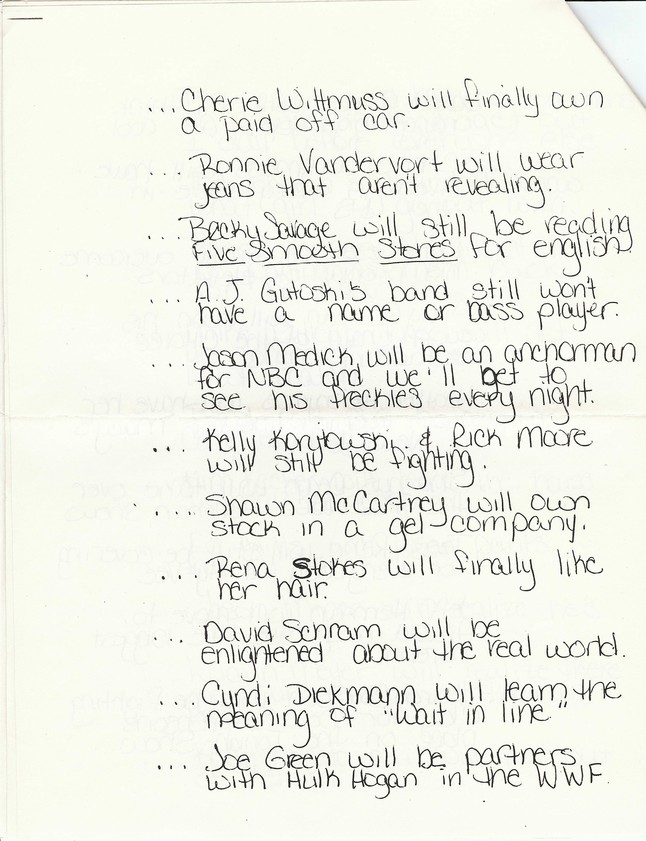 ...Cherie Wittmuss will finally own
a paid off car.
...Ronnie Vandervort will wear
jeans that aren't revealing.
...Becky Savage will still be reading
Five Smooth Stones for english
...A.J. Gutoski's band still won't
have a name or bass player.
...Jason Medick will be an anchorman
for NBC and we'll get to
see his freckles every night.
...Kelly Korytowski & Rick Moore
will still be fighting.
...Shawn McCartney will own
stock in a gel company.
...Rena Stokes will finally like
her hair.
...David Schram will be
enlightened about the real world.
...Cyndi Diekmann will learn the
meaning of "Wait in line."
...Joe Green will be partners
with Hulk Hogan in the WWF.